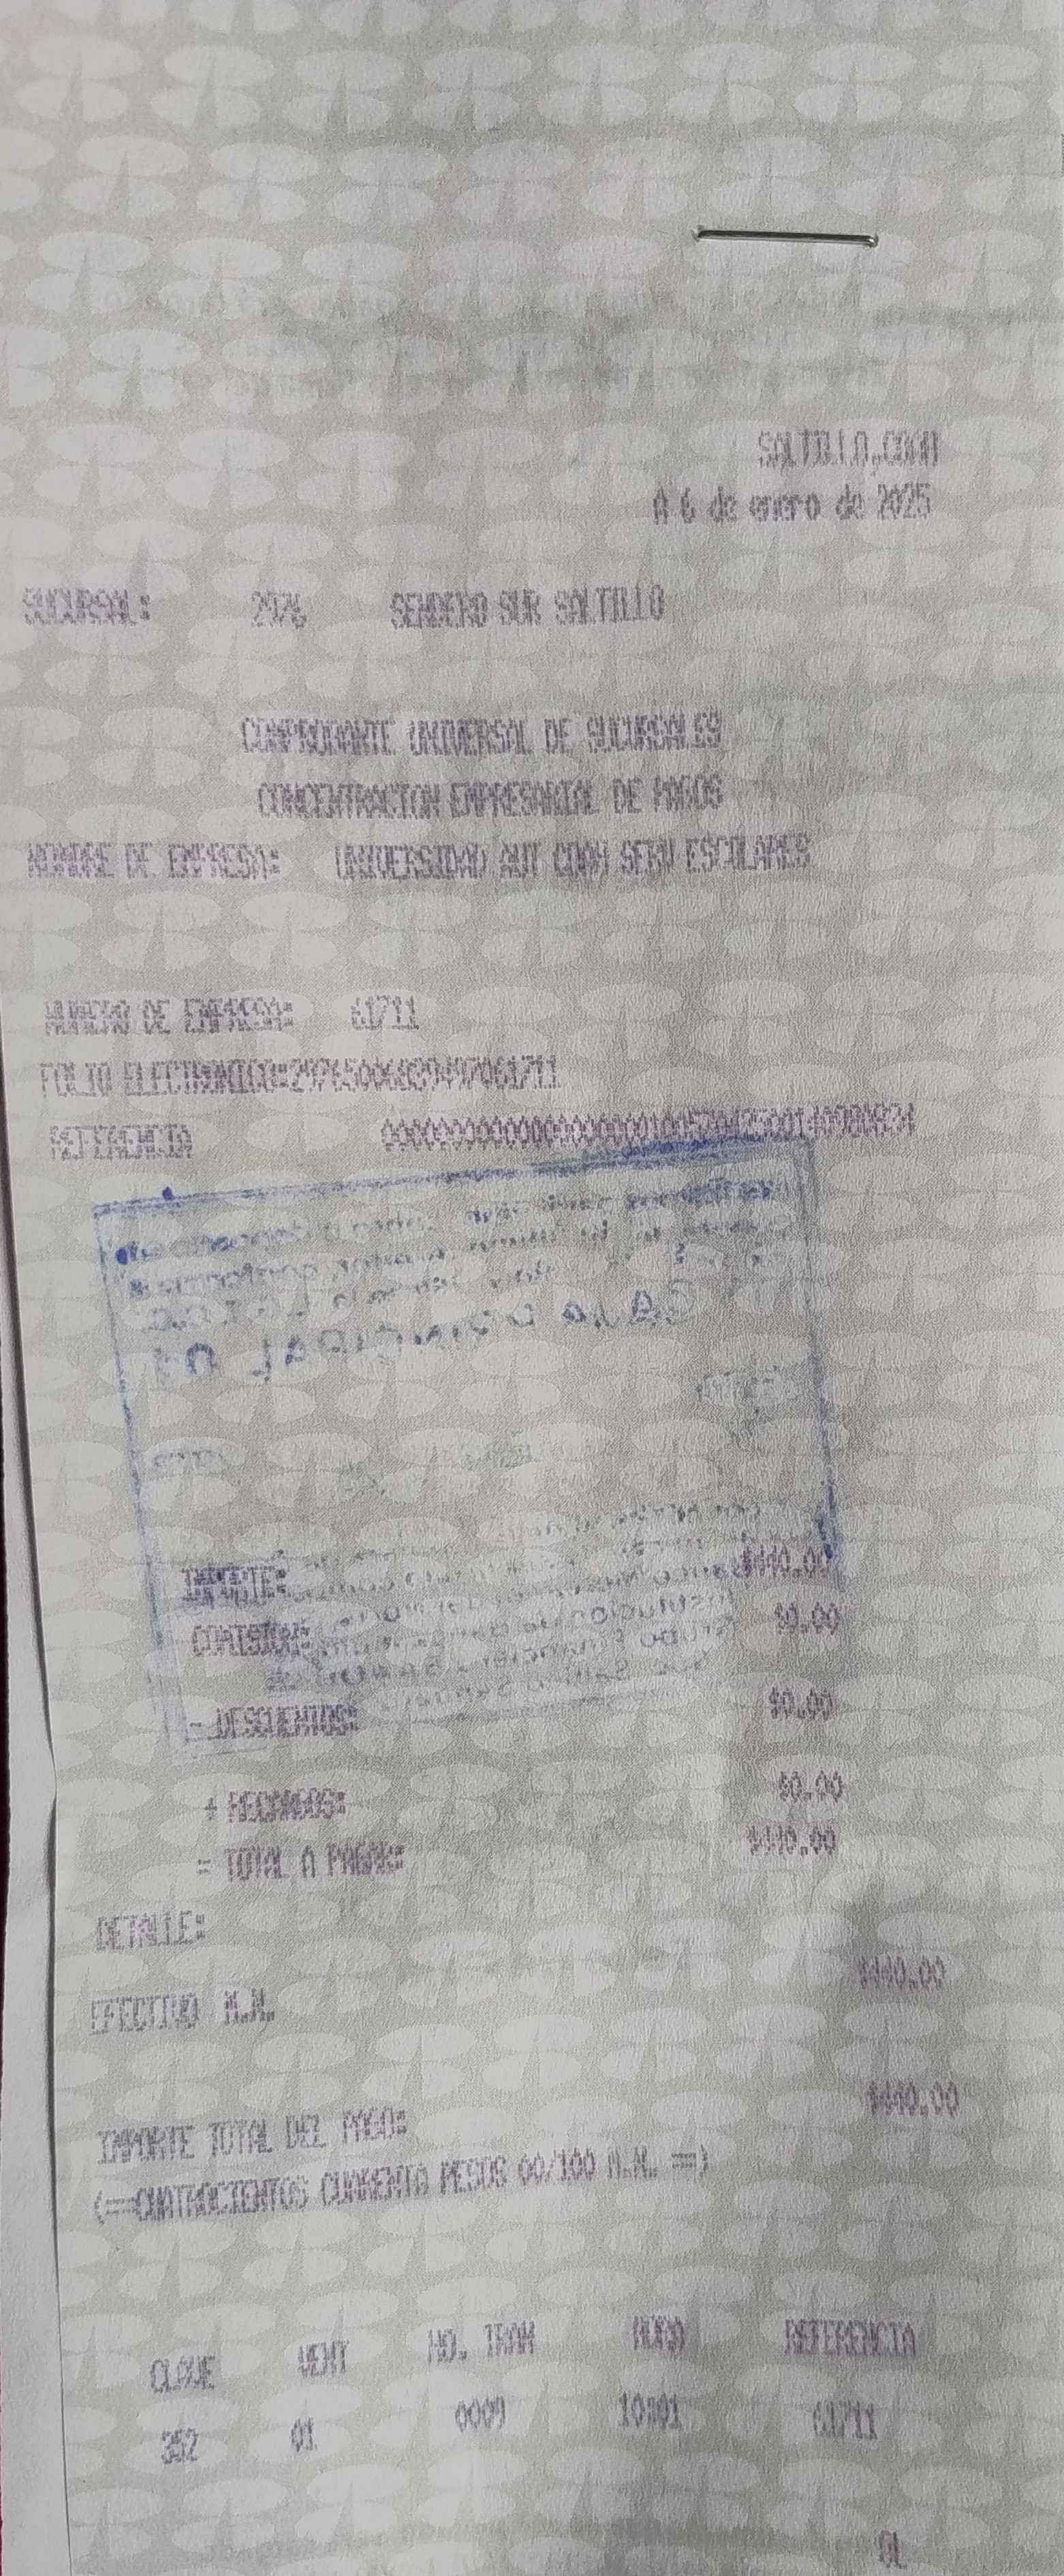 SALTILLO,COAH
A 6 de enero de 2025
SUCURSAL: 2976 SENDERO SUR SALTILLO
COMPROBANTE UNIVERSAL DE SUCURSALES
CONCENTRACION EMPRESARIAL DE PAGOS
NOMBRE DE EMPRESA: UNIVERSIDAD AUT COAH SERV ESCOLARES
NUMERO DE EMPRESA: 61711
FOLIO ELECTRONICO:
REFERENCIA
CAJA PRINCIPAL 01
IMPORTE: $440.00
COMISION: $0.00
- DESCUENTOS: $0.00
+ RECARGOS: $0.00
= TOTAL A PAGAR: $440.00
DETALLE:
EFECTIVO M.N. $440.00
IMPORTE TOTAL DEL PAGO: $440.00
(==CUATROCIENTOS CUARENTA PESOS 00/100 M.N. ==)
CLAVE VENT NO. TRAN HORA REFERENCIA
352 01 0009 10:01 61711